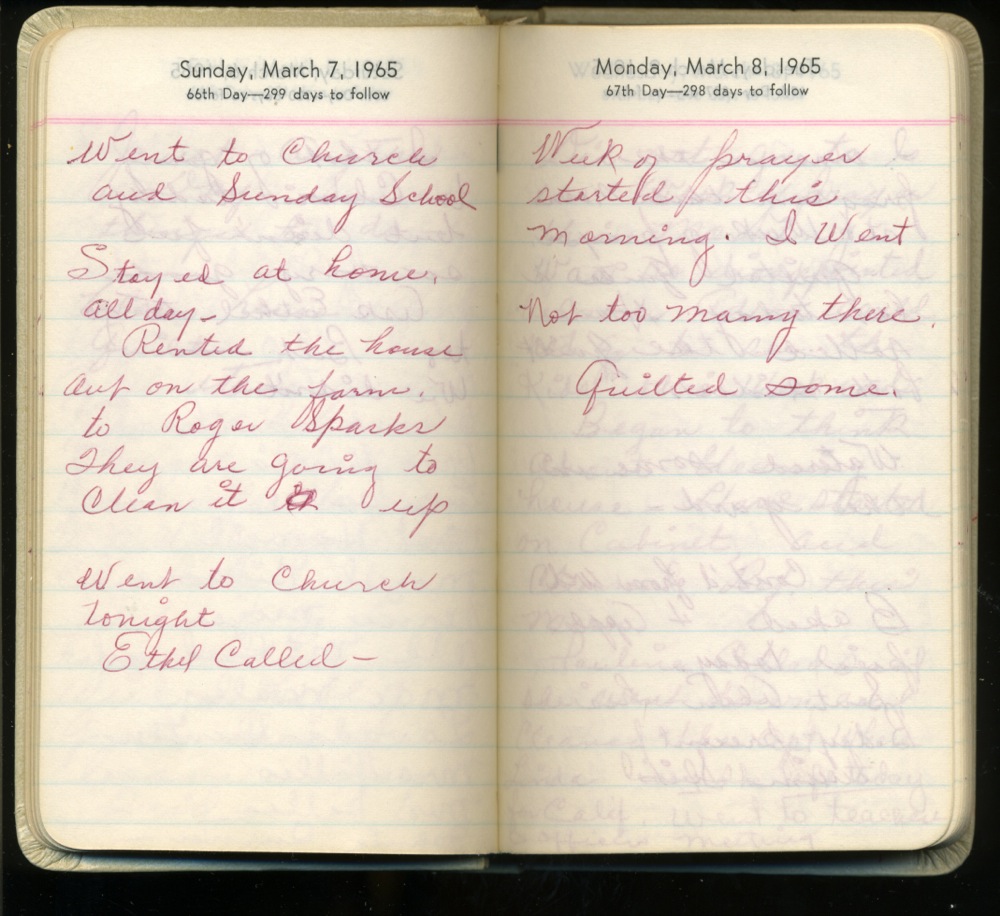 Sunday, March 7, 1965
66th Day—299 days to follow
Went to Church
and Sunday School
Stayed at home.
all day—
Rented the house
out on the farm.
to Roger Sparks
They are going to
Clean it up
Went to Church
tonight
Ethel Called—
Monday, March 8, 1965
67th Day—298 days to follow
Week of prayer
started this
morning. I Went
Not too many there.
Quilted some.